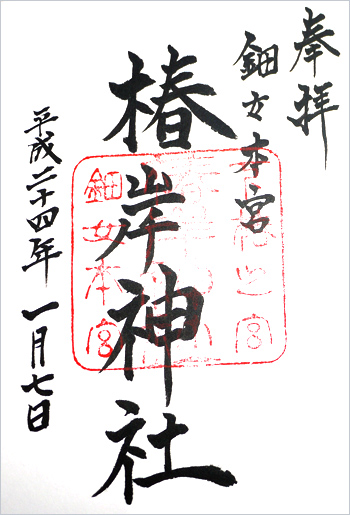 奉拝
鈿女本宮
椿岸神社
鈿女本宮
平成二十四年 一月七日